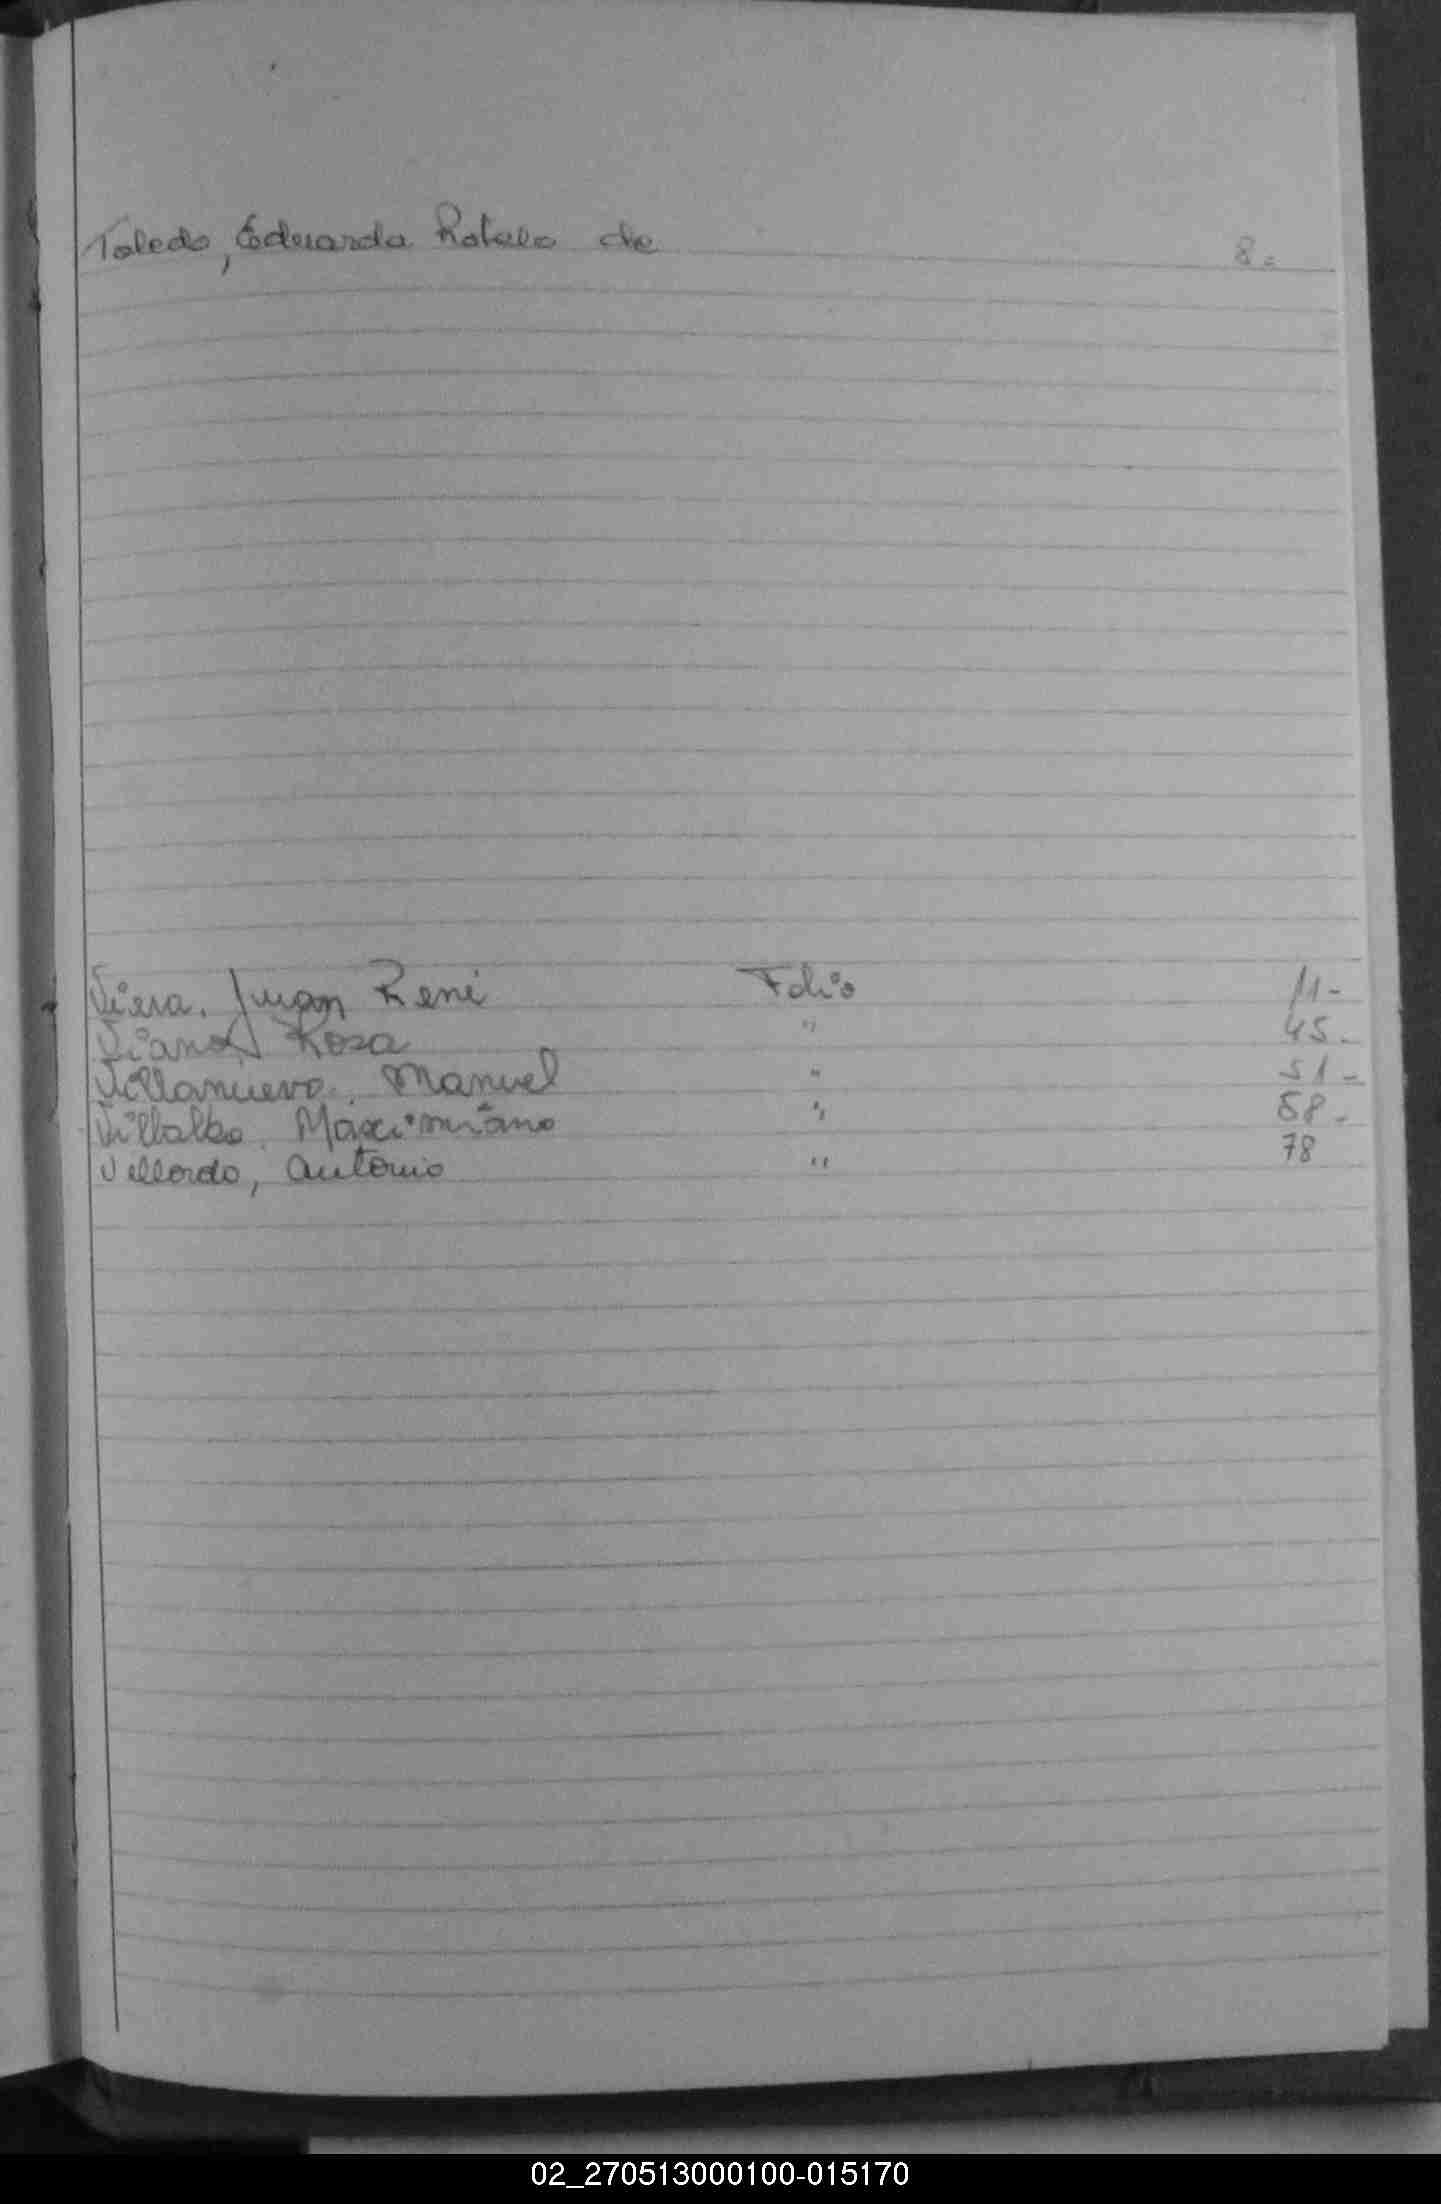 Toledo, Eduarda Rotela de 8.
Viera, Juan René Folio 11-
Viano, Rosa " 45.
Villanueva, Manuel " 51-
Villalba, Maximiano " 58-
Villordo, Antonio " 78
02_270513000100-015170